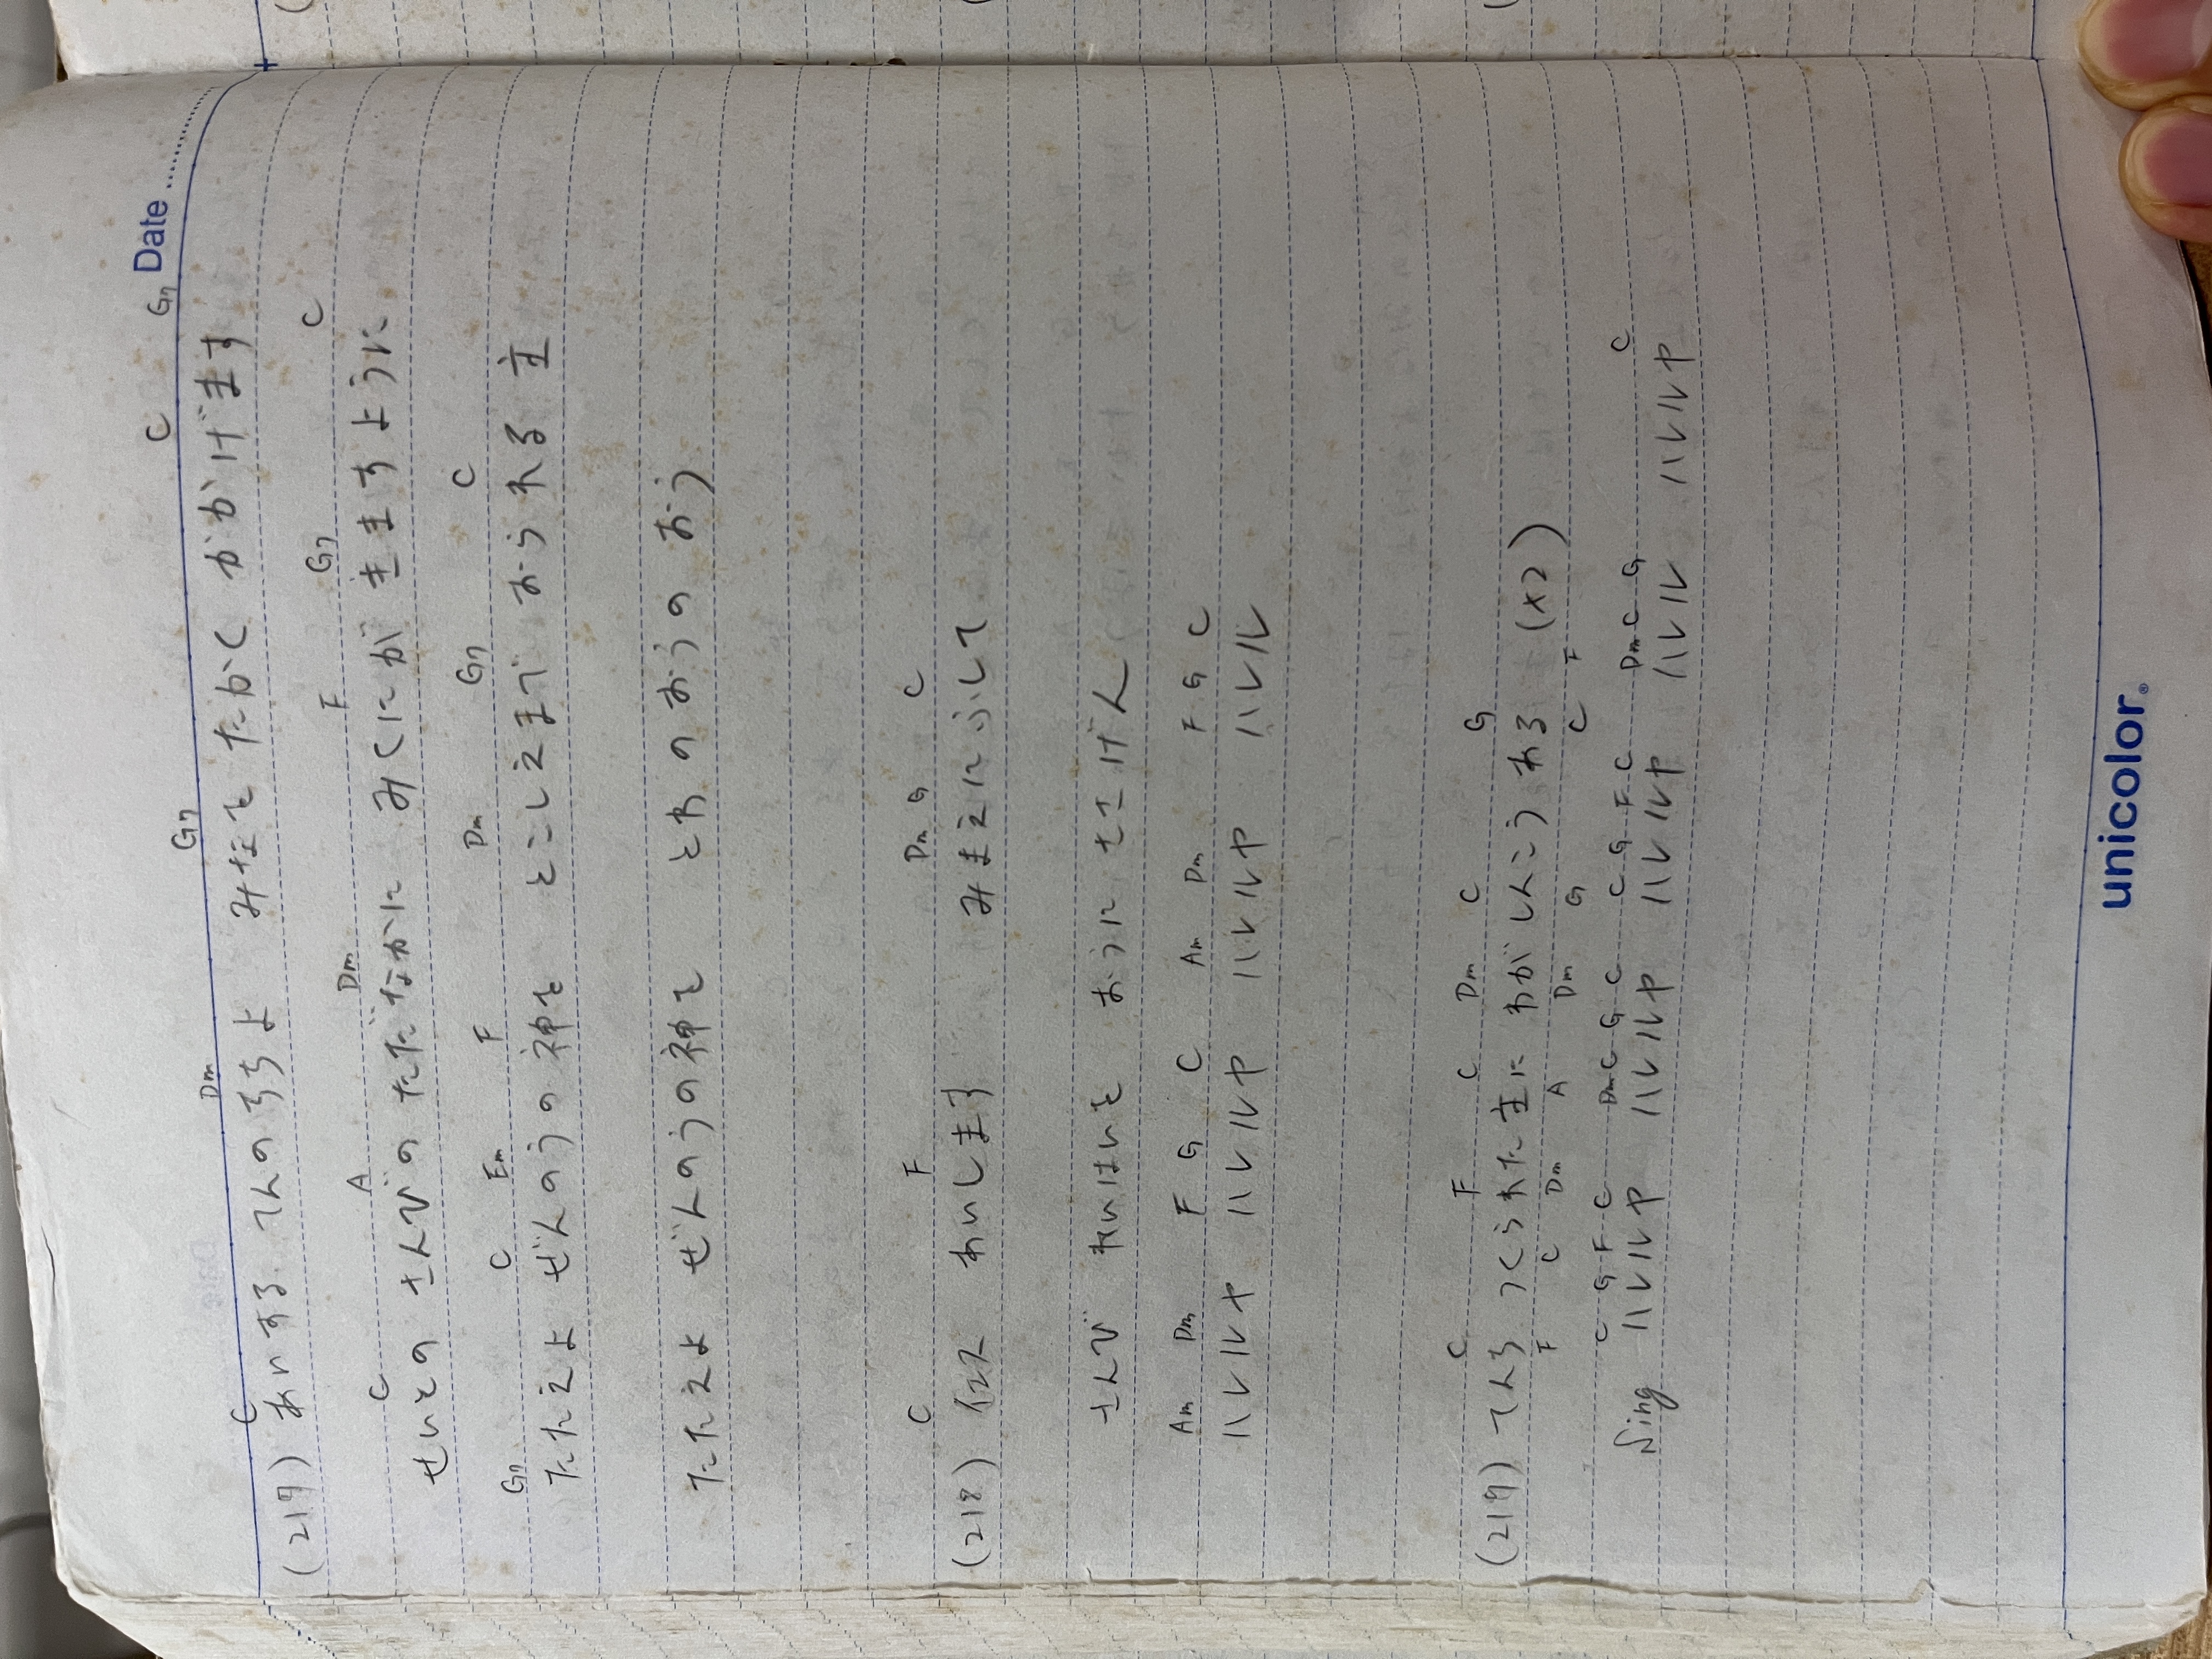 Date
C Dm G7 C G7
(217) あいする てんのちちよ みなを たかく かかげます
C A Dm F G7 C
せいとの さんびの ただなかに みくにが きますように
G7 C Em F Dm G7 C
たたえよ ぜんのうの神を とこしえまで おられる 主
たたえよ ぜんのうの神を とわ の おうの おう
C F Dm G C
(218) イエス あいします みまえに ふして
さんび れいはいを おうに ささげん
Am Dm F G C Am Dm F G C
ハレルヤ ハレルヤ ハレルヤ ハレル
C F C Dm C G
(219) てんち つくられた 主に わがしんこう ある (×2)
F C Dm A Dm G C F
C G F C Dm C G C C G F C Dm C G C
Sing ハレルヤ ハレルヤ ハレルヤ ハレル ハレルヤ
unicolor®